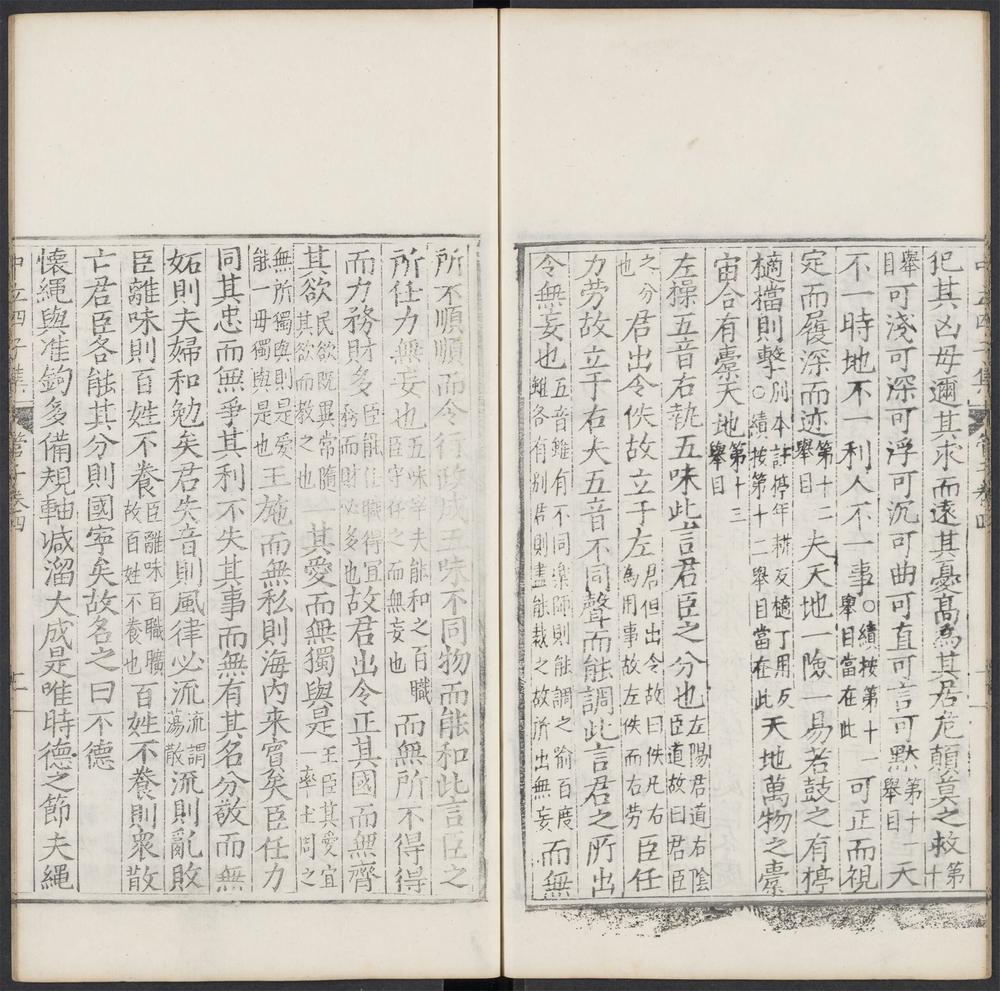 犯其凶毋邇其求而遠其憂髙為其居危顛莫之救第十
舉目可淺可深可浮可沉可曲可直可言可黙第十一舉目天
不一時地不一利人不一事○續按第十一舉目當在此可正而視
定而履深而迹第十二舉目夫天地一險一易若鼓之有㯑
擿擋則擊別本註㯑年耕反擿丁用反○續按第十二舉目當在此天地萬物之橐
宙合有橐天地第十三舉目
左操五音右執五味此言君臣之分也左陽君道右陰臣道故曰君臣
之分也君出令佚故立于左君但出令故曰佚凡右為用事故左佚而右勞臣任
力勞故立于右夫五音不同聲而能調此言君之所出
令無妄也五音雖有不同樂師則能調之喻百度雖各有别君則盡能裁之故所出無妄而無
所不順順而令行政成五味不同物而能和此言臣之
所任力無妄也五味宰夫能和之百職臣守任之而無妄也而無所不得得
而力務財多臣能任職得宜務而財必多也故君出令正其國而無齊
其欲民欲既異常隨其欲而教之也一其愛而無獨與是王臣其愛宜一率土周之
無所獨與則是愛能一毋獨與是也王施而無私則海内来賓矣臣任力
同其忠而無爭其利不失其事而無有其名分敬而無
妬則夫婦和勉矣君失音則風律必流流謂蕩散流則亂敗
臣離味則百姓不養臣離味百職曠故百姓不養也百姓不養則衆散
亡君臣各能其分則國寧矣故名之曰不德
懷繩與准鉤多備規軸減溜大成是唯時德之節夫繩
中立四子集 管子卷四